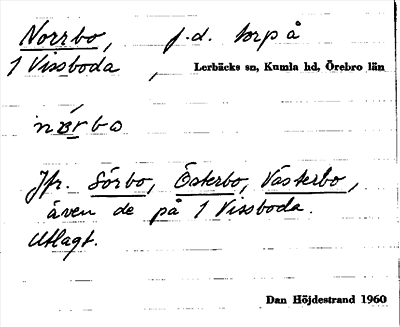 Norrbo, f.d. torp å
1 Vissboda, Lerbäcks sn, Kumla hd, Örebro län
Jfr. Sörbo, Österbo, Västerbo,
även de på 1 Vissboda.
Utlagt.
Dan Höjdestrand 1960